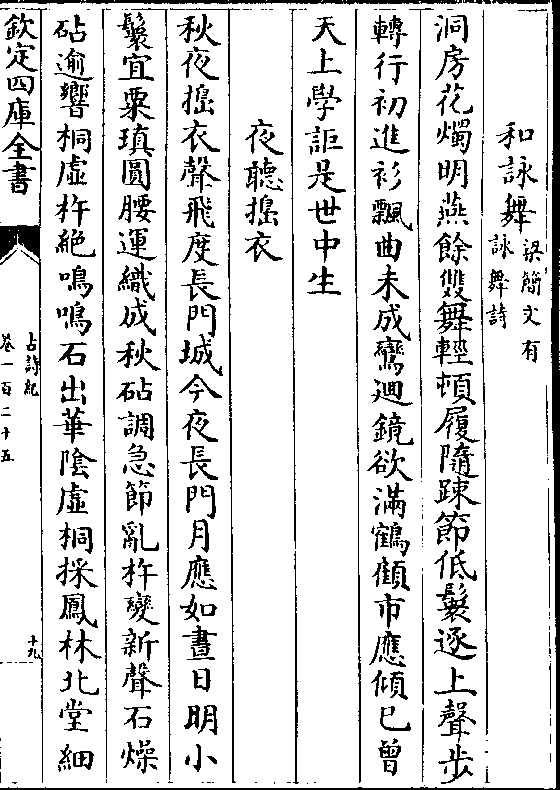 和詠舞梁簡文有詠舞詩
洞房花燭明燕餘雙舞輕頓履隨踈節低鬟逐上聲步
轉行初進衫飄曲未成鸞迴鏡欲滿鶴顧市應傾已曾
天上學詎是世中生
夜聽搗衣
秋夜搗衣聲飛度長門城今夜長門月應如晝日明小
鬟宜粟瑱圓腰運織成秋砧調急節亂杵變新聲石燥
砧逾響桐虛杵絕鳴鳴石出華陰虛桐採鳳林北堂細
欽定四庫全書
古詩紀
卷一百二十五
十九